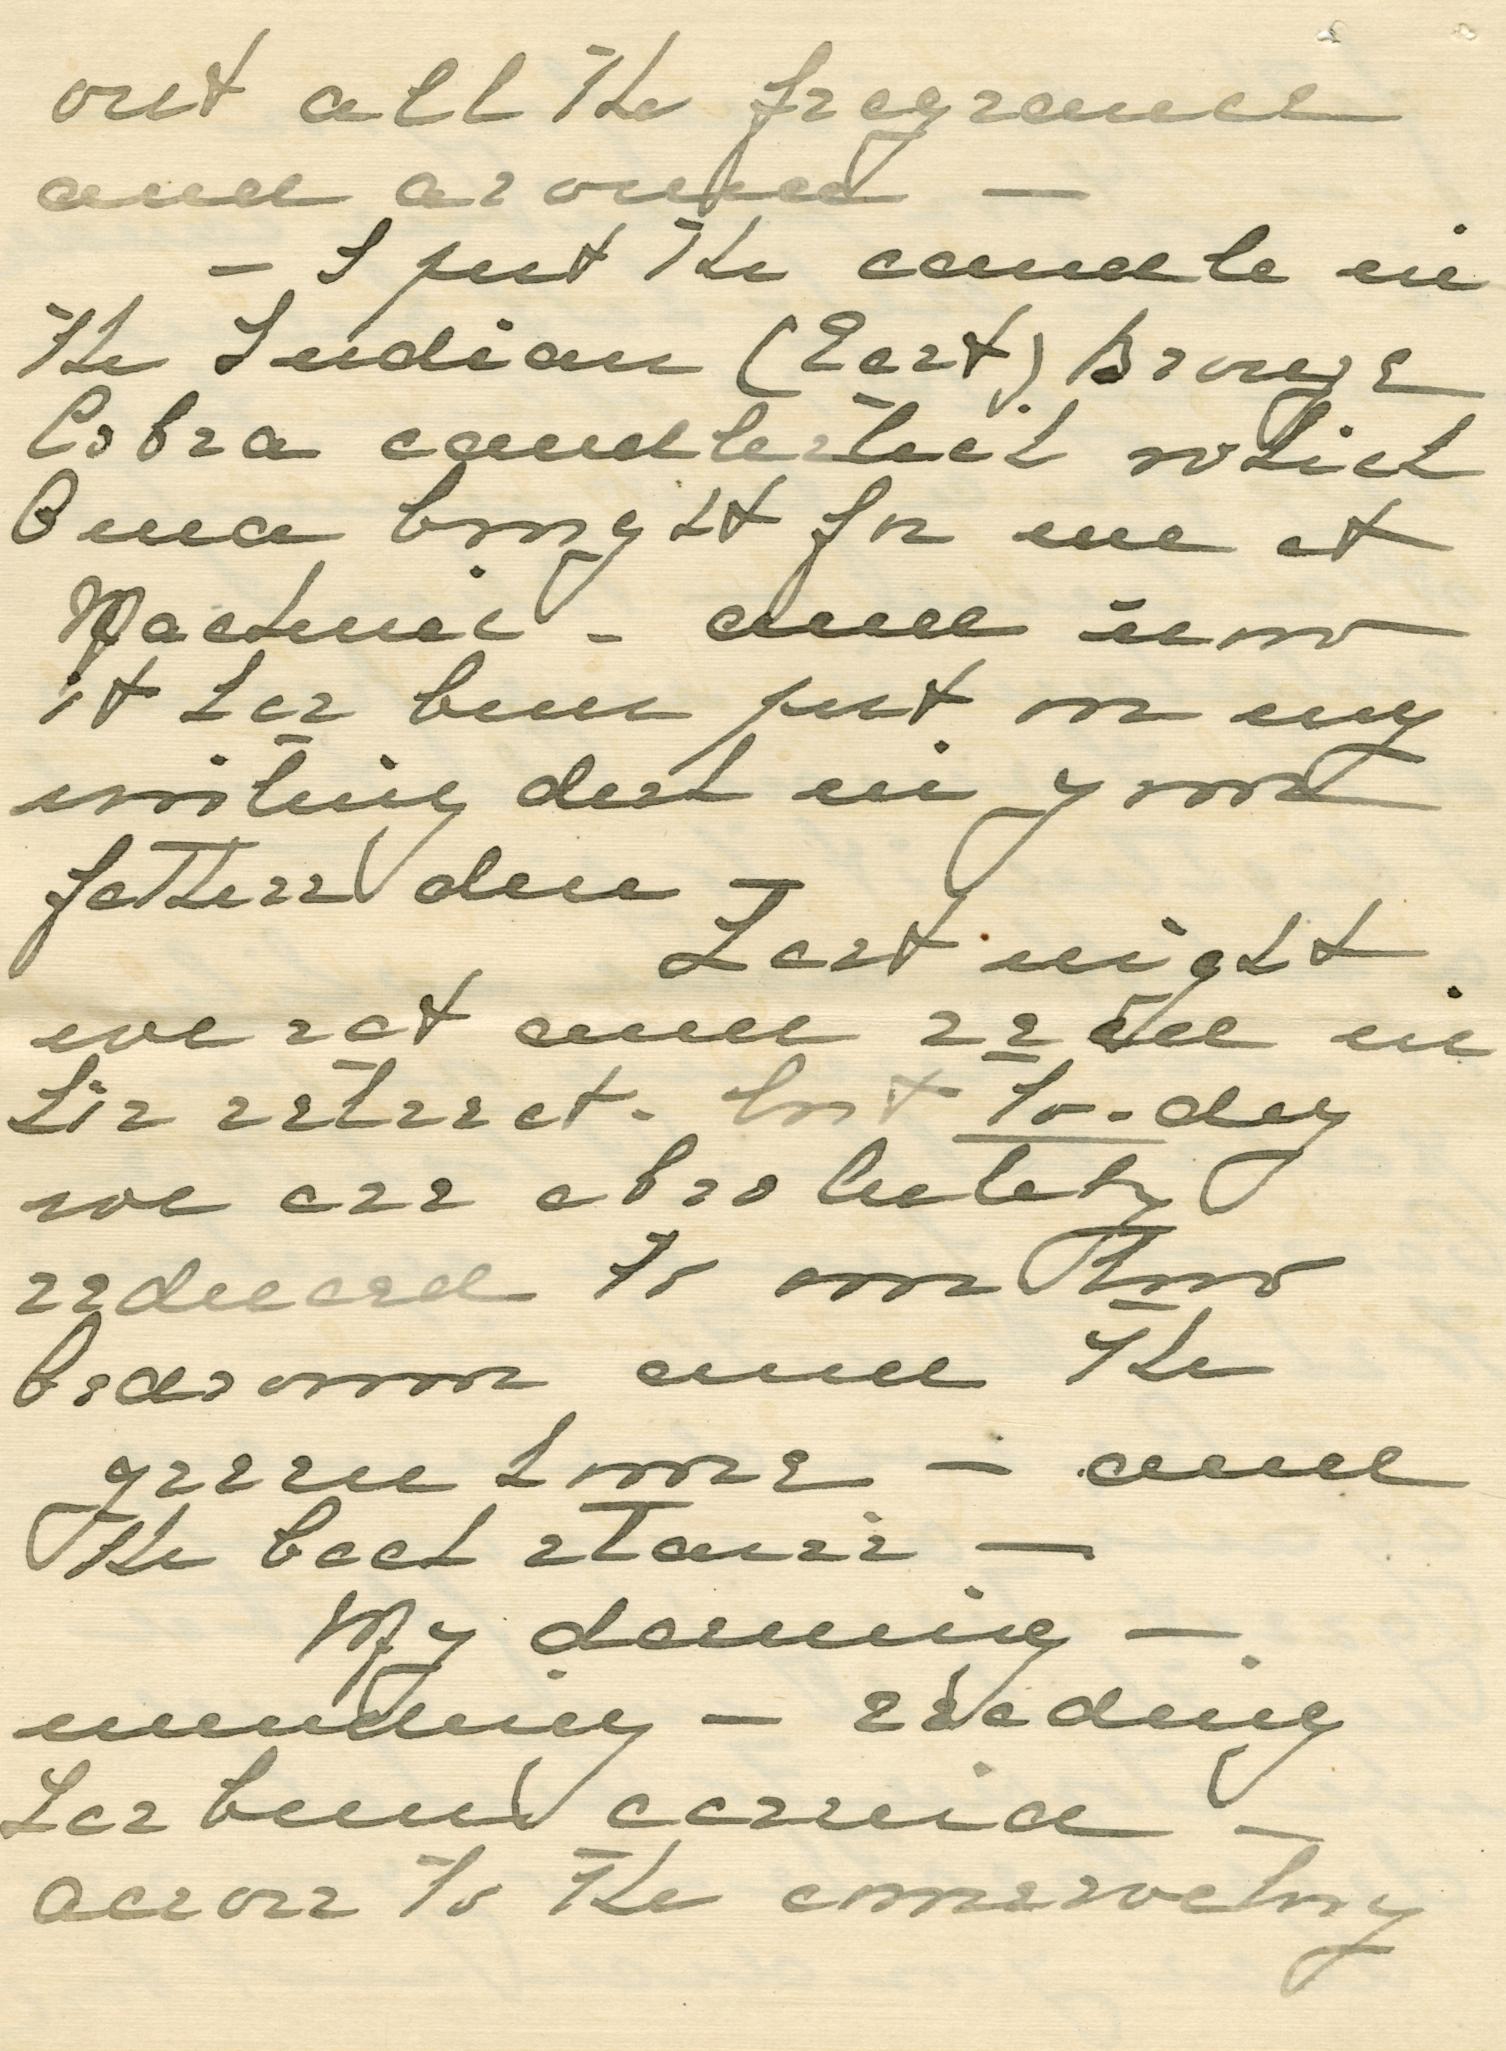 out all the fragrance
and around —
— I put the candle in
the Indian (East) Bronze
Cobra candlestick which
Bena bought for me at
Mackinac - and now
it has been put on my
writing desk in your
fathers den —
Last night
we sat and read in
his retreat. but to-day
we are absolutely
reduced to our two
bedrooms and the
green house — and
the back stairs —
My darning —
mending — reading
has been carried —
across to the conservatory